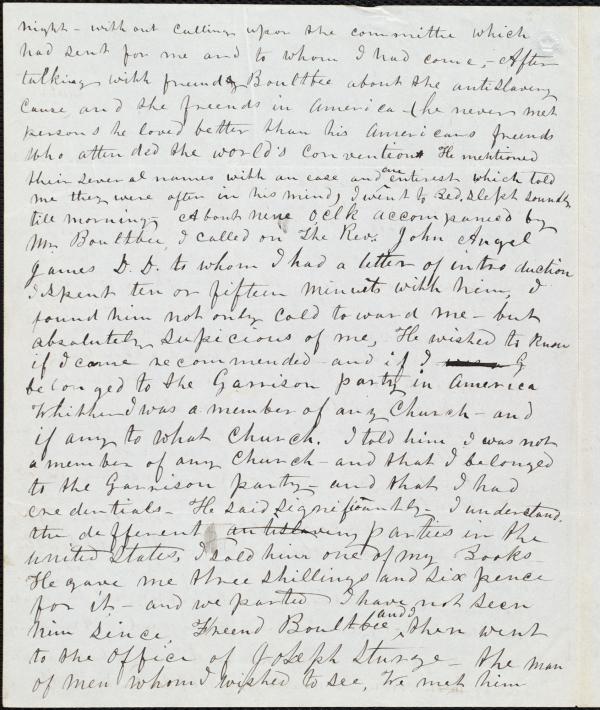 night - without calling upon the committee which
had sent for me and to whom I had come, - After
talking with friend Boultbee about the antislavery
cause and the freends in America - (he never met
persons he loved better than his Americans freends
who attended the world's convention. He mentioned
their several names with an ease and an enterest which told
me they were often in his mind, I went to Bed, slept soundly
till morning - About nine oclk accompaned by
Mr Boultbee, I called on The Rev. John Angel
James D. D. to whom I had a letter of intro duction
I spent ten or fifteen minuts with him, I
found him not only cold toward me - but
absolutely supicious of me, He wished to know
if I came recommended - and if I
belonged to the Garrison party in America
Whither I was a member of any Church - and
if any to what Church. I told him I was not
a member of any Church - and that I belonged
to the Garrison party - and that I had
credentials - He said significantly - I understand
the defferent antislavery parties in the
united States, I sold him one of my Books -
He gave me three shillings and six pence
for it - and we parted I have not seen
him since, Freend Boultbee and I then went
to the office of Joseph Sturge - the man
of men whom I wished to see, We met him